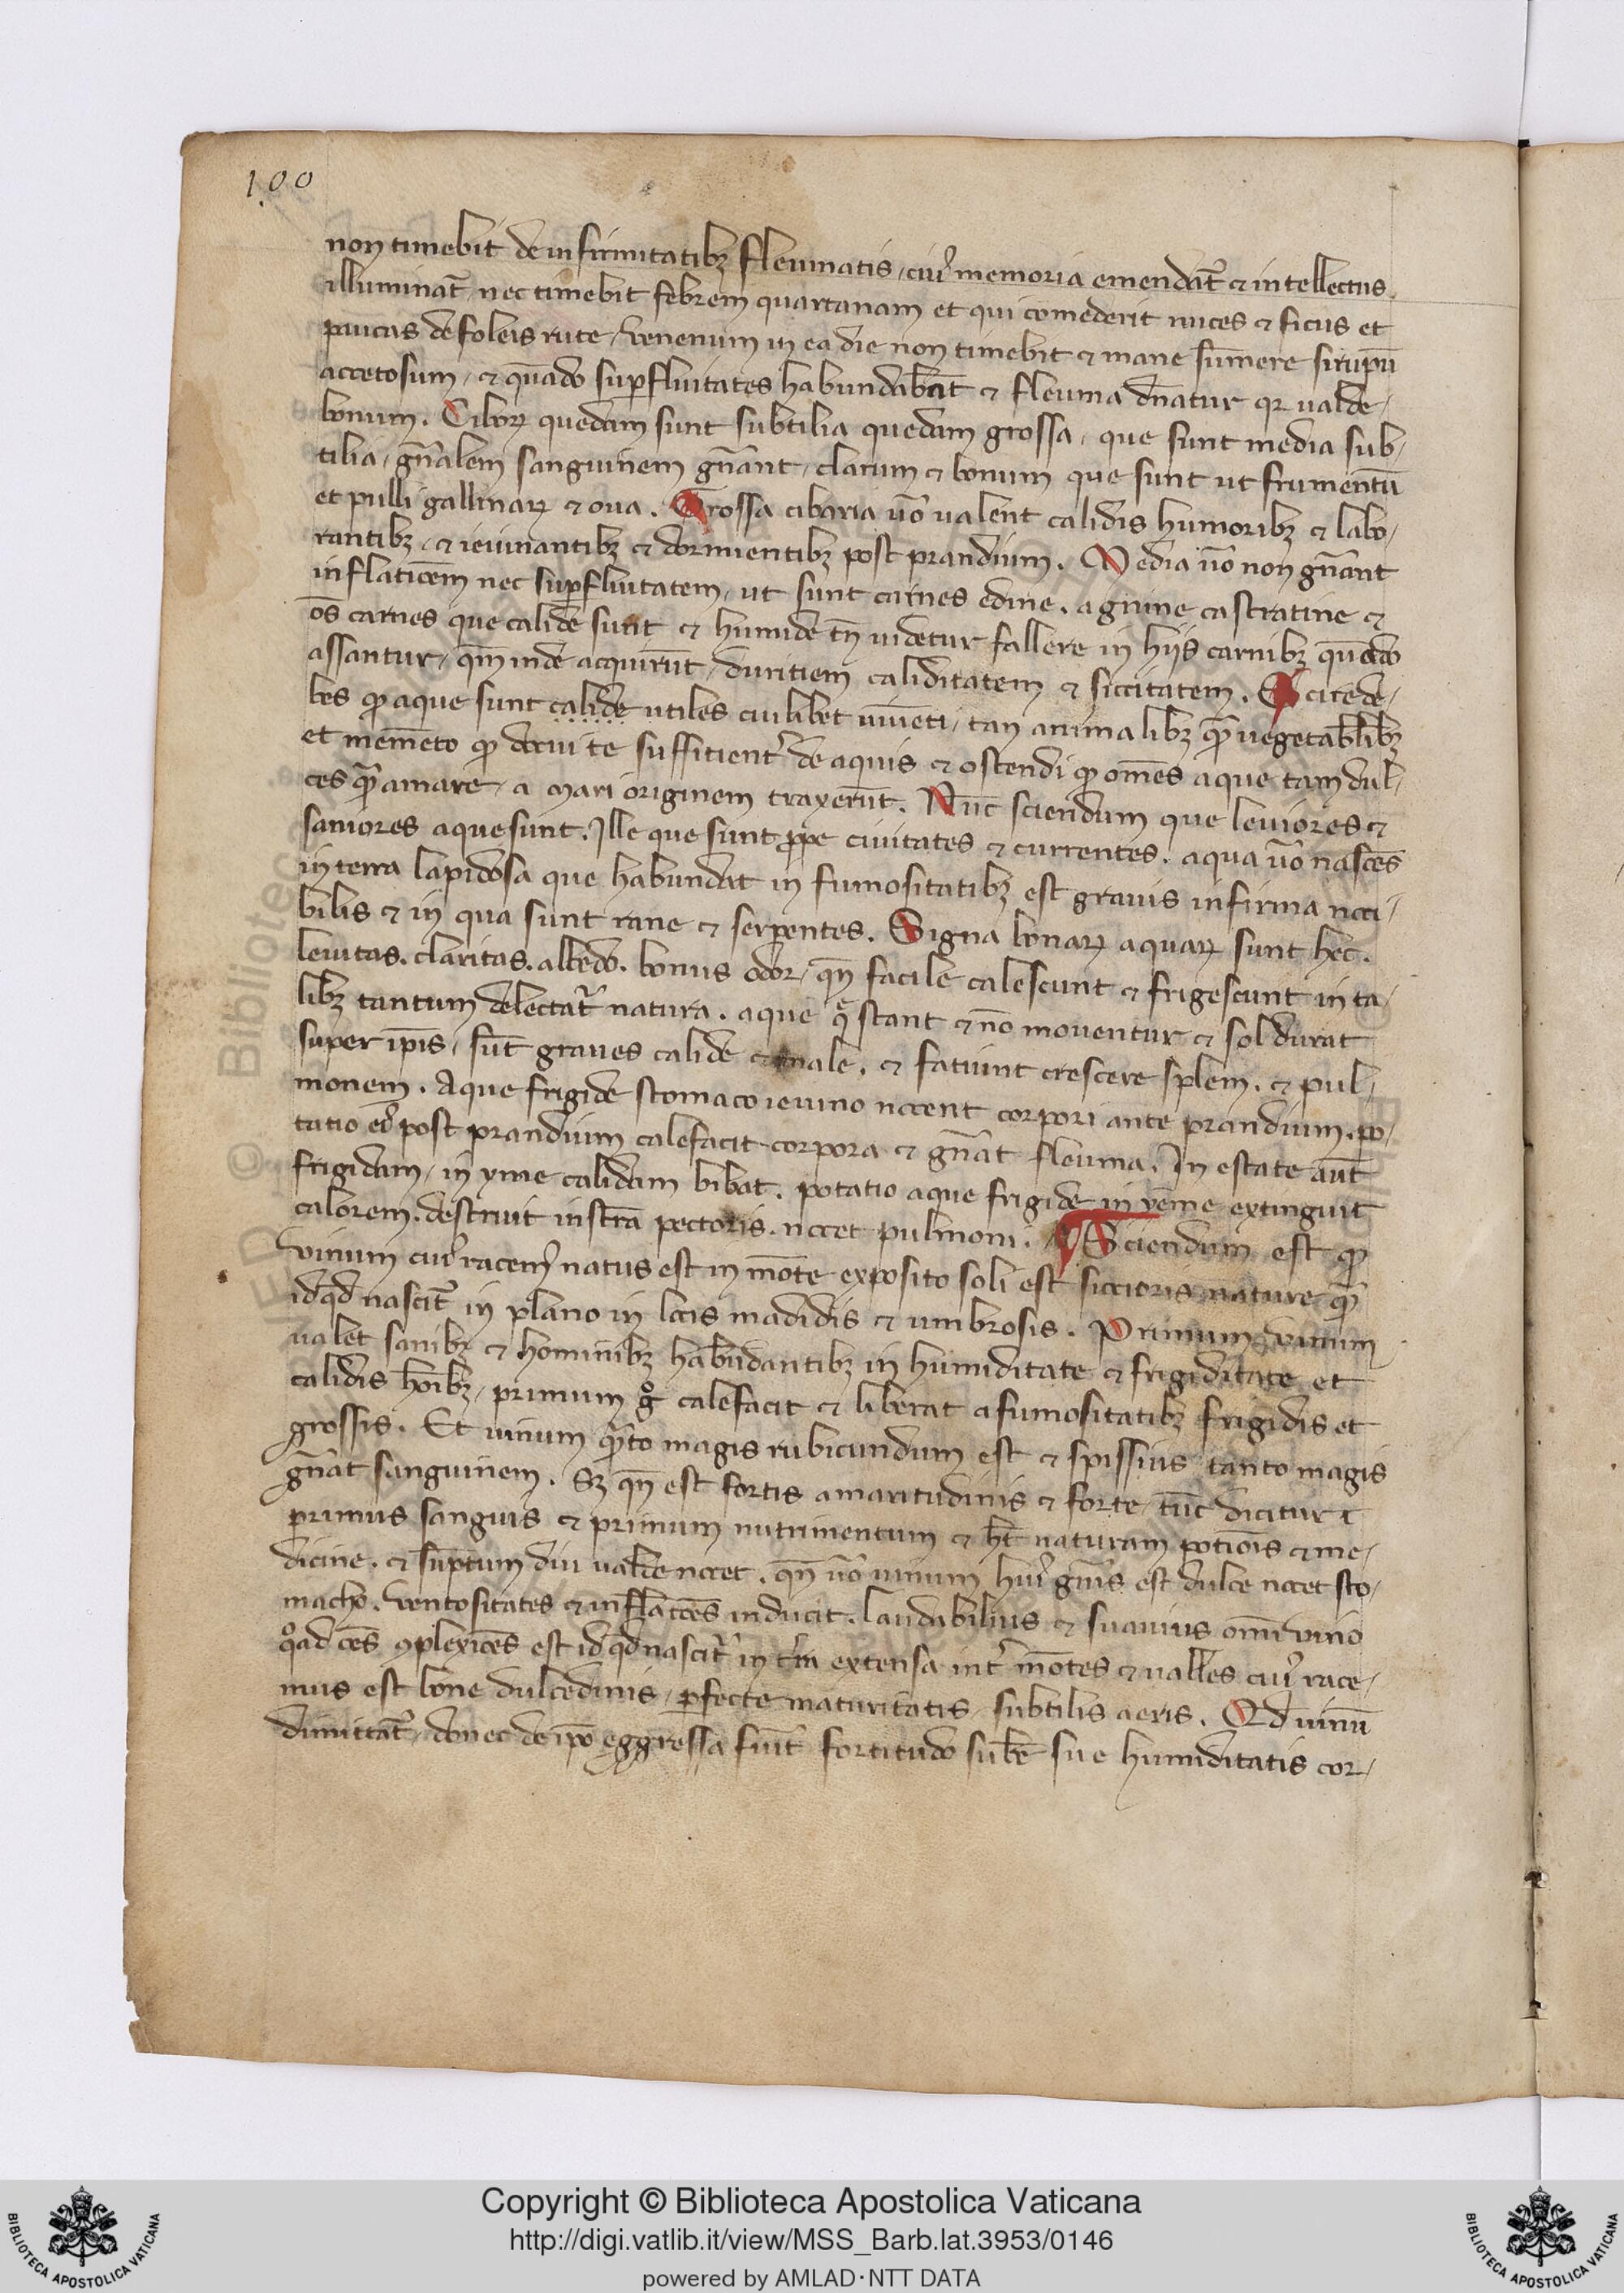 100
non timebit de infirmitatibꝫ fleumatis, cui᷒ memoria emendat᷑ ⁊ intellectus
illuminat᷑, nec timebit febrem quartanam et qui comederit nuces ⁊ ficus et
paucas de foleis rute, venenum in ea die non timebit ⁊ mane sūmere sirupū
accetosum, ⁊ qn̄ado suꝑfluitates habundabāt ⁊ fleuma dn̄atur qꝛ ualde
bonum. Ciboꝝ quedam sunt subtilia quedam grossa, que sunt media sub-
tilia, gn̄alem sanguinem gn̄ant, clarum ⁊ bonum que sunt ut frumentū
et pulli gallinaꝝ ⁊ oua. Grossa cibaria u̅o ualent calidis humoribꝫ ⁊ labo-
rantibꝫ, ⁊ ieiunantibꝫ ⁊ dormientibꝫ post prandium. Media u̅o non gn̄ant
inflatiōem nec suꝑfluitatem, ut sunt carnes edine, agnine castratine ⁊
ōs carnes que calide sunt ⁊ humide tn̄ uidetur fallere in hijs carnibꝫ quādo
assantur, qm̄ inde acquirūt, duritiem caliditatem ⁊ siccitatem. Et scire de-
bes ꝙ aque sunt calide utiles cuilibet uiuēti, tan animalibꝫ qᷓ uegetabilibꝫ
et memēto ꝙ docui te sufficient᷑ de aquis ⁊ ostendi ꝙ om̄es aque tam dul-
ces qᷓ amare, a mari originem traxerūt. Nūc sciendum que leuiores ⁊
saniores aque sunt. Ille que sunt ꝓpe ciuitates ⁊ currentes. aqua u̅o nascēs
in terra lapidosa que habundat in fumositatibꝫ est grauis infirma noci-
bilis ⁊ in qua sunt rane ⁊ serpentes. Signa bonaꝝ aquaꝝ sunt hec.
leuitas. claritas. albedo. bonus odor, qn̄ facile calescunt ⁊ frigescunt in ta-
libꝫ tantum delectat᷑ natura. aque q̄ stant ⁊ nō mouentur ⁊ sol durat
super ip̄is, sūt graues calide ⁊ male, ⁊ fatiunt crescere splem. ⁊ pul-
monem. Aque frigide stomaco ieiuno nocent corpori ante prandium. po-
tatio ei᷒ post prandium calefacit corpora ⁊ gn̄at fleuma. In estate aūt
frigidam, in yme calidam bibat. potatio aque frigide in yēme extinguit
calorem, destruit instr̄a pectoris. nocet pulmoni. ¶ Sciendum est ꝙ
vinum cui᷒ racem᷒ natus est in mōte exposito soli est siccioris nature qᷓ
id qd̄ nascit᷑ in plano in locis madidis ⁊ umbrosis. Primum vinum
ualet senibꝫ ⁊ hominibꝫ habūdantibꝫ in humiditate ⁊ frigiditate et
calidis hōibꝫ, primum gͦ calefacit ⁊ liberat a fumositatibꝫ frigidis et
grossis. Et uinum qᷓto magis rubicundum est ⁊ spissius tanto magis
gn̄at sanguinem. Sꝫ qn̄ est fortis amaritudinis ⁊ forte, tūc dicitur
primus sanguis ⁊ primum nutrimentum ⁊ ht̄ naturam potiōis ⁊ me-
dicine. ⁊ sumptum diu ualde nocet. qn̄ u̅o uinum hui᷒ gn̄is est dulce nocet sto-
macho. ventositates ⁊ inflatiōes inducit. laudabilius ⁊ suauius om̄i vino
qͦad oēs ꝯplexiōes est id qd̄ nascit᷑ in t᷑ra extensa int᷑ mōtes ⁊ ualles cui᷒ race-
mus est bone dulcedinis, ꝑfecte maturitatis, subtilis aeris. Qd̄ uinū
dimittat᷑, donec de ip̄o eggressa fuit᷑ fortitudo sub̄e sue humiditatis cor-
Copyright © Biblioteca Apostolica Vaticana
http://digi.vatlib.it/view/MSS_Barb.lat.3953/0146
powered by AMLAD·NTT DATA
BIBLIOTECA APOSTOLICA VATICANA
BIBLIOTECA APOSTOLICA VATICANA